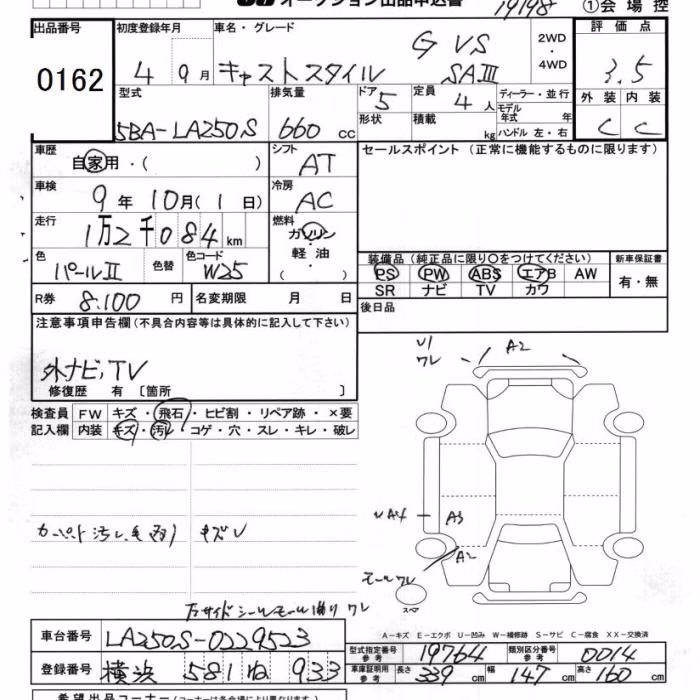 オークション出品申込書 19198 ①会場控
出品番号 0162
初度登録年月 4 9月
車名・グレード キャストスタイル G VS SAⅢ
2WD・4WD
評価点 3.5
外装 内装
C C
型式 5BA-LA250S
排気量 660 cc
ドア 5
形状
定員 4 人
積載 kg
ディーラー・並行
モデル年式 年
ハンドル 左・右
車歴 自家用・( )
シフト AT
セールスポイント (正常に機能するものに限ります)
車検 9年10月(1日)
冷房 AC
走行 1万2千084km
燃料 ガソリン・軽油・( )
色 パールⅡ 色替 色コード W25
装備品(純正品に限り○をつけてください) 新車保証書
PS PW ABS エアB AW 有・無
SR ナビ TV カワ
R券 8.100 円 名変期限 月 日
後日品
注意事項申告欄(不具合内容等は具体的に記入して下さい)
外ナビ,TV
修復歴 有 〔箇所 〕
検査員 FW キズ・飛石・ヒビ割・リペア跡・×要
記入欄 内装 キズ・汚レ・コゲ・穴・スレ・キレ・破レ
U1
ワレ
A2
UA4
A3
A2
モールワレ
スペア
カーペット汚レ キズU
左サイドシールモール ワレ
A-キズ E-エクボ U-凹み W-補修跡 S-サビ C-腐食 XX-交換済
車台番号 LA250S-0229523
登録番号 横浜 581 ね 933
型式指定番号 参考 19764 類別区分番号 参考 0014
車庫証明用 参考 長さ 339 cm 幅 147 cm 高さ 160 cm
希望出品コーナー(コーナーは各会場により異なります)